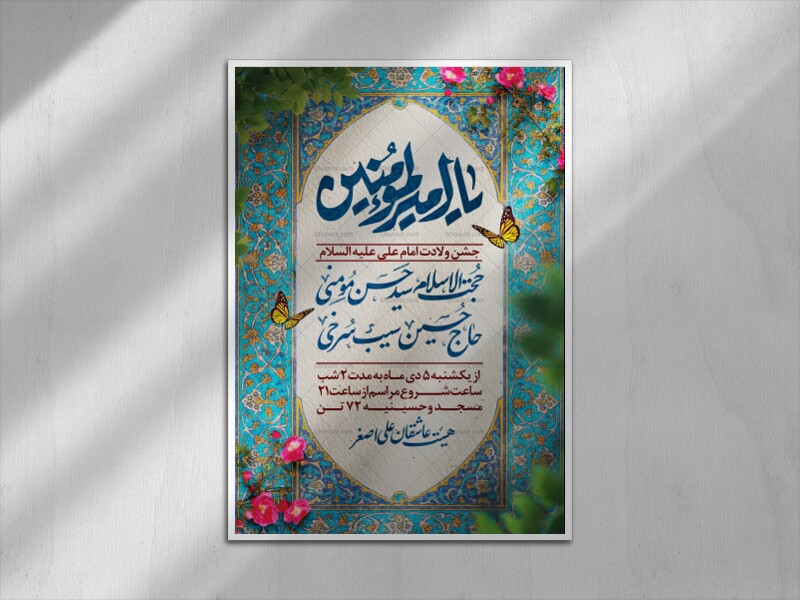 یا امیرالمؤمنین
جشن ولادت امام علی علیه السلام
حجت الاسلام سید حسن مؤمنی
حاج حسین سیب سرخی
از یکشنبه ۵ دی ماه به مدت ۲ شب
ساعت شروع مراسم از ساعت ۲۱
مسجد و حسینیه ۷۲ تن
هیئت عاشقان علی اصغر